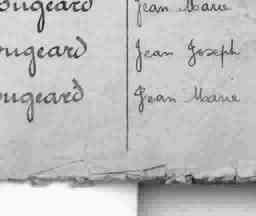 ougeard Jean Marie
ougeard Jean Joseph
ougeard Jean Marie